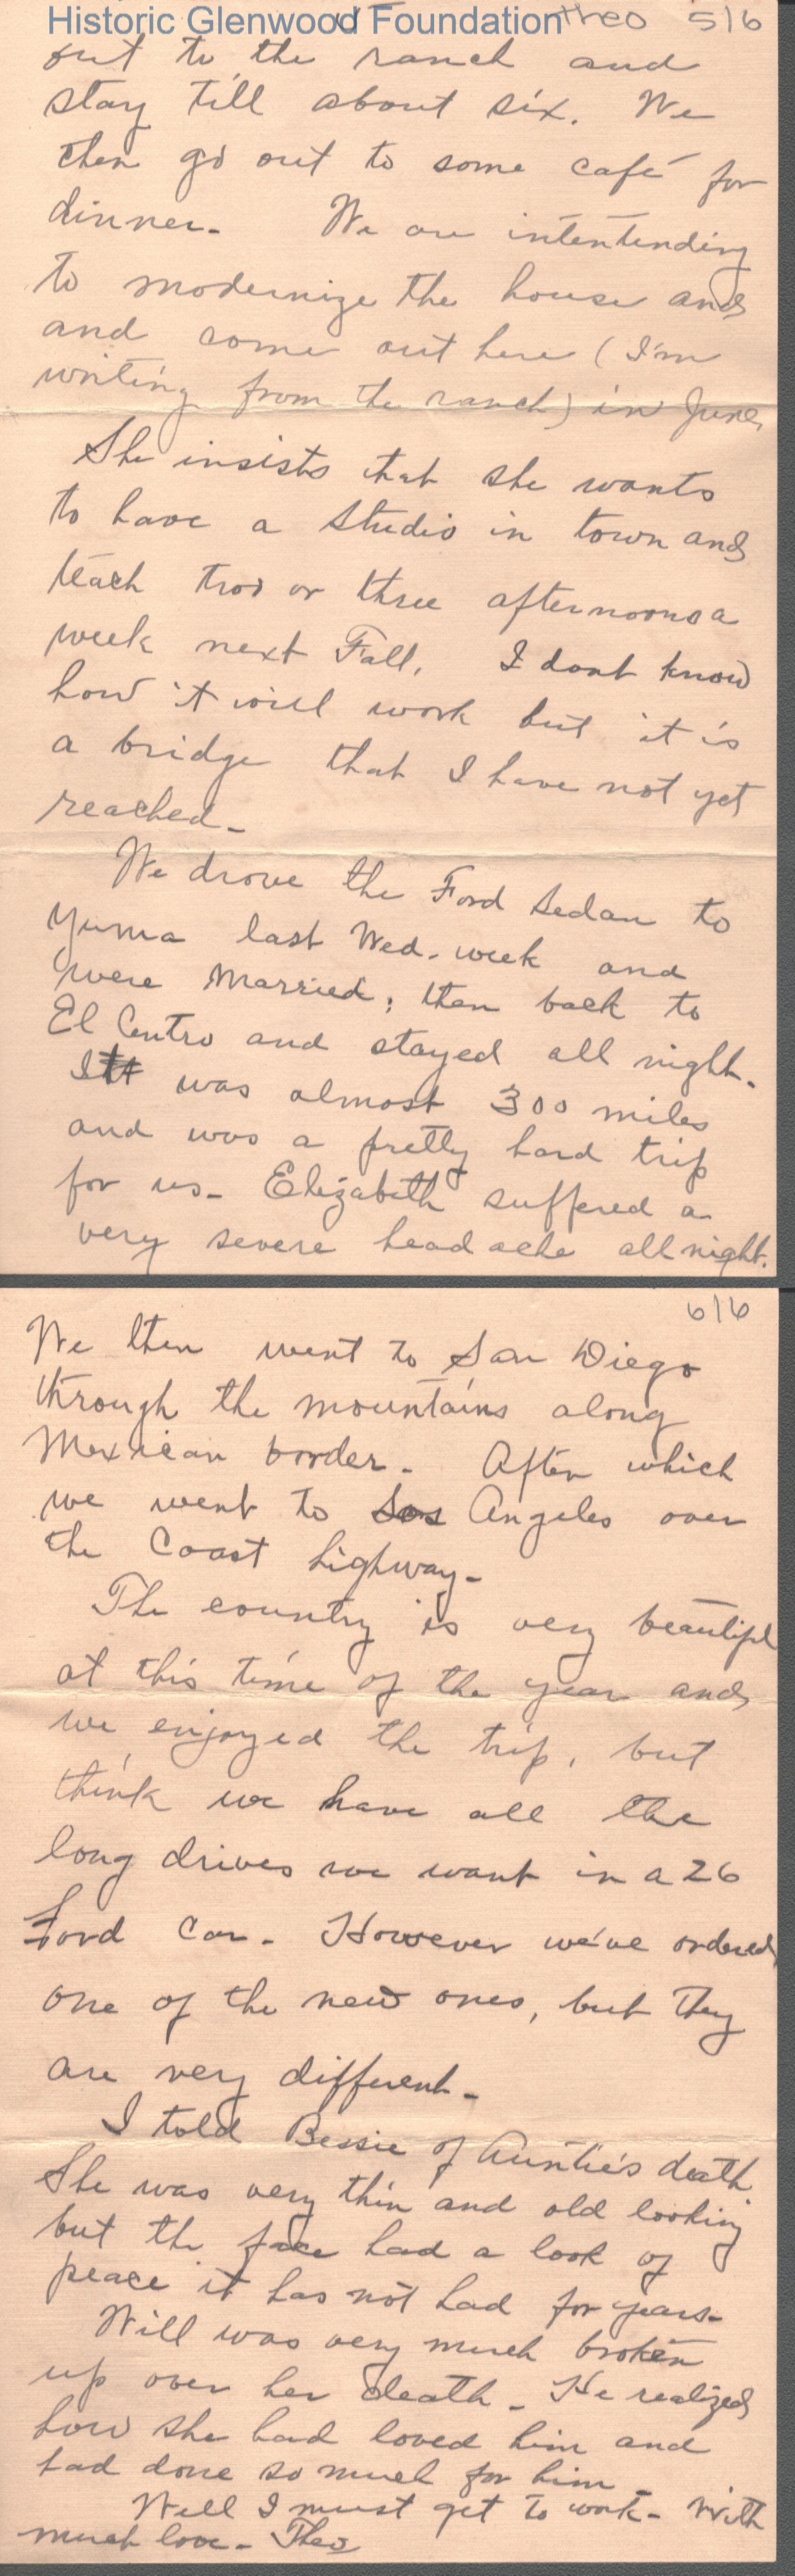 Historic Glenwood Foundation
Theo 5/6
out to the ranch and
stay till about six. We
then go out to some café for
dinner. We are intentending
to modernize the house and
and come out here (I'm
writing from the ranch) in June.
She insists that she wants
to have a studio in town and
teach two or three afternoons a
week next Fall. I dont know
how it will work but it is
a bridge that I have not yet
reached.
We drove the Ford Sedan to
Yuma last Wed. week and
were Married; then back to
El Centro and stayed all night.
It was almost 300 miles
and was a pretty hard trip
for us. Elizabeth suffered a
very severe head ache all night.
6/6
We then went to San Diego
through the mountains along
Mexican border. After which
we went to Los Angeles over
the Coast highway.
The country is very beautiful
at this time of the year and
we enjoyed the trip, but
think we have all the
long drives we want in a 26
Ford Car. However we've ordered
one of the new ones, but they
are very different.
I told Bessie of Auntie's death
She was very thin and old looking
but the face had a look of
peace it has not had for years.
Will was very much broken
up over her death. He realized
how she had loved him and
had done so much for him.
Well I must get to work. With
much love. Theo